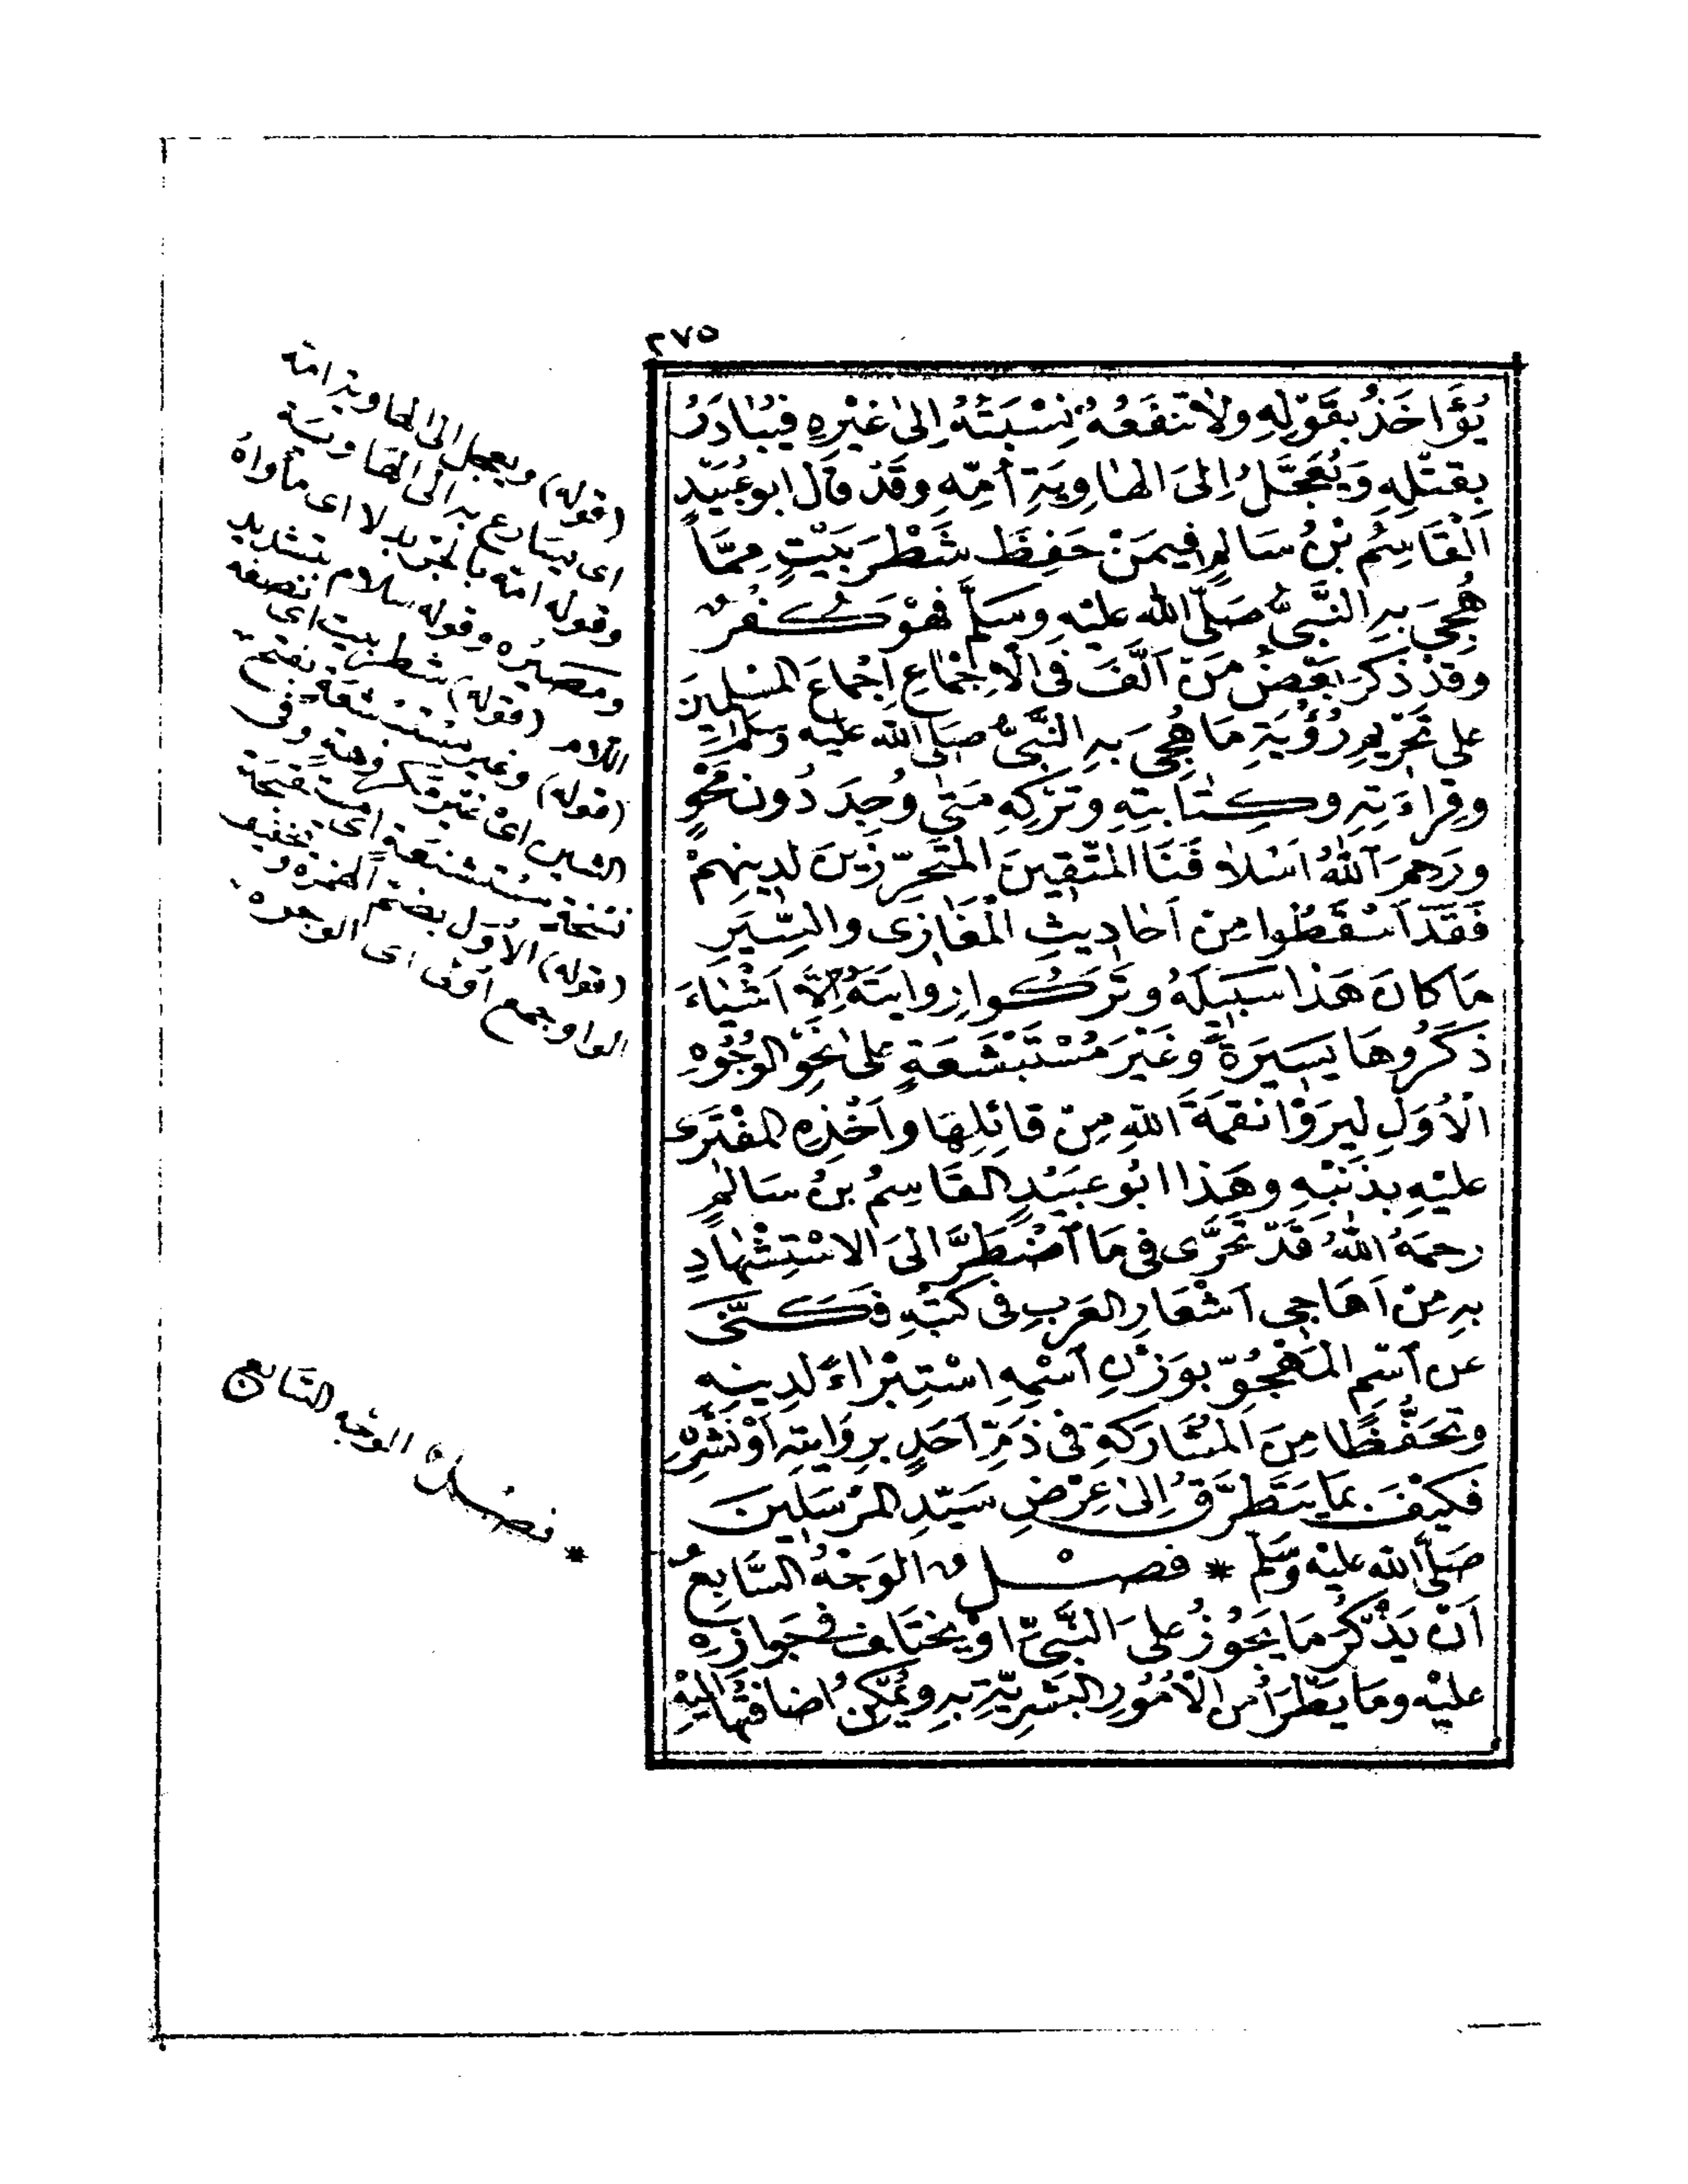 ٢٧٥
يُؤَاخَذُ بِقَوْلِهِ وَلَا تَنْفَعُهُ نِسْبَتُهُ اِلٰى غَيْرِهِ فَيُبَادَرُ
بِقَتْلِهِ وَيُعَجَّلُ اِلَى الْهَاوِيَةِ اُمِّهِ وَقَدْ قَالَ ابو عُبَيْدٍ
الْقَاسِمُ بْنُ سَالِمٍ فِيمَنْ حَفِظَ شَطْرَ بَيْتٍ مِمَّا
هُجِيَ بِهِ النَّبِيُّ صَلَّى الله عليْهِ وسَلَّمَ فَهْوَ كُفْرٌ
وقَدْ ذَكَرَ بَعْضُ مَنْ اَلَّفَ فِى الْاِجْمَاعِ اِجْمَاعَ المسْلِمِينَ
على تَحْرِيمِ رُؤْيَةِ مَا هُجِىَ بِهِ النَّبِىُّ صَلى الله عليه وسَلم
وَقِرَاءَتِهِ وكِتَابَتِهِ وَتَرْكِهِ مَتٰى وُجِدَ دُونَ مَحْوٍ
ورَحِمَ اللهُ اَسْلَافَنَا المُتَّقِينَ المُتَحَرِّزِينَ لِدِينِهِمْ
فَقَدْ اَسْقَطُوا مِنْ اَحَادِيثِ الْمَغَازِى والسِّيَرِ
مَا كَانَ هَذَا سَبِيلَهُ وتَرَكُوا رِوايَتَهُ اِلَّا اَشْيَاءَ
ذَكَرُوهَا يَسِيرَةً وَغَيْرَ مُسْتَبْشَعَةٍ على نَحْوِ الوُجُوهِ
الْاُوَلِ لِيَرَوْا نقمَةَ اللهِ مِنْ قائِلِهَا واَخْذِهِ المفْتَرِىَ
عليْهِ بِذَنْبِهِ وهَذَا ابُو عبَيْدٍ القَاسِمُ بنُ سَالِمٍ
رحمَهُ اللهُ قَدْ تَحَرَّى فى مَا اضْطَرَّ الىَ الاسْتِشْهَادِ
بِهِ مِنْ اَهَاجِى اَشْعَارِ العَرَبِ فى كتُبِهِ فَكَنَّى
عن اسْمِ المَهْجُوِّ بوَزْنِ اسْمِهِ اسْتِبْرَاءً لدِينِهِ
وتَحَفُّظًا مِنَ المُشَارَكَةِ فى ذَمِّ اَحَدٍ بِرِوَايتِهِ اَوْ نَشْرِهِ
فكيْفَ بمَا يتَطَرَّقُ اِلىٰ عِرْضِ سَيِّدِ المرْسَلِينَ
صَلَّى الله عليْهِ وَسَلَّمَ * فصْلٌ الوَجْهُ السَّابِعُ
اَنْ يَذْكُرَ مَا يَجُوزُ على النَّبِىِّ اوْ يختَلفُ فى جَوازِهِ
عليْهِ ومَا يَطْرَأُ من الْاُمُورِ البَشَرِيَّةِ بهِ ويُمْكِنُ اضافَتُهَا اليْهِ
(قوله) ويعجل الى الهاوية امه
اى يسَارع به الى الهاويَة
وقوله امّه بالجر بدلا اى مأواهُ
ومصيره وقوله سلام بتشديد
اللام (قوله) شطر بيت اى نصفه
(قوله) وغير مستبشعَة بفتح
الشين اى غير مكروهة وفى
نسخة مستشنعَة اى مستقبحَة
(قوله) الاُوَل بضم الهمزه و تخفيف
الواو جمع اولى اى الوجوه
* فصْل الوجْه السَّابع